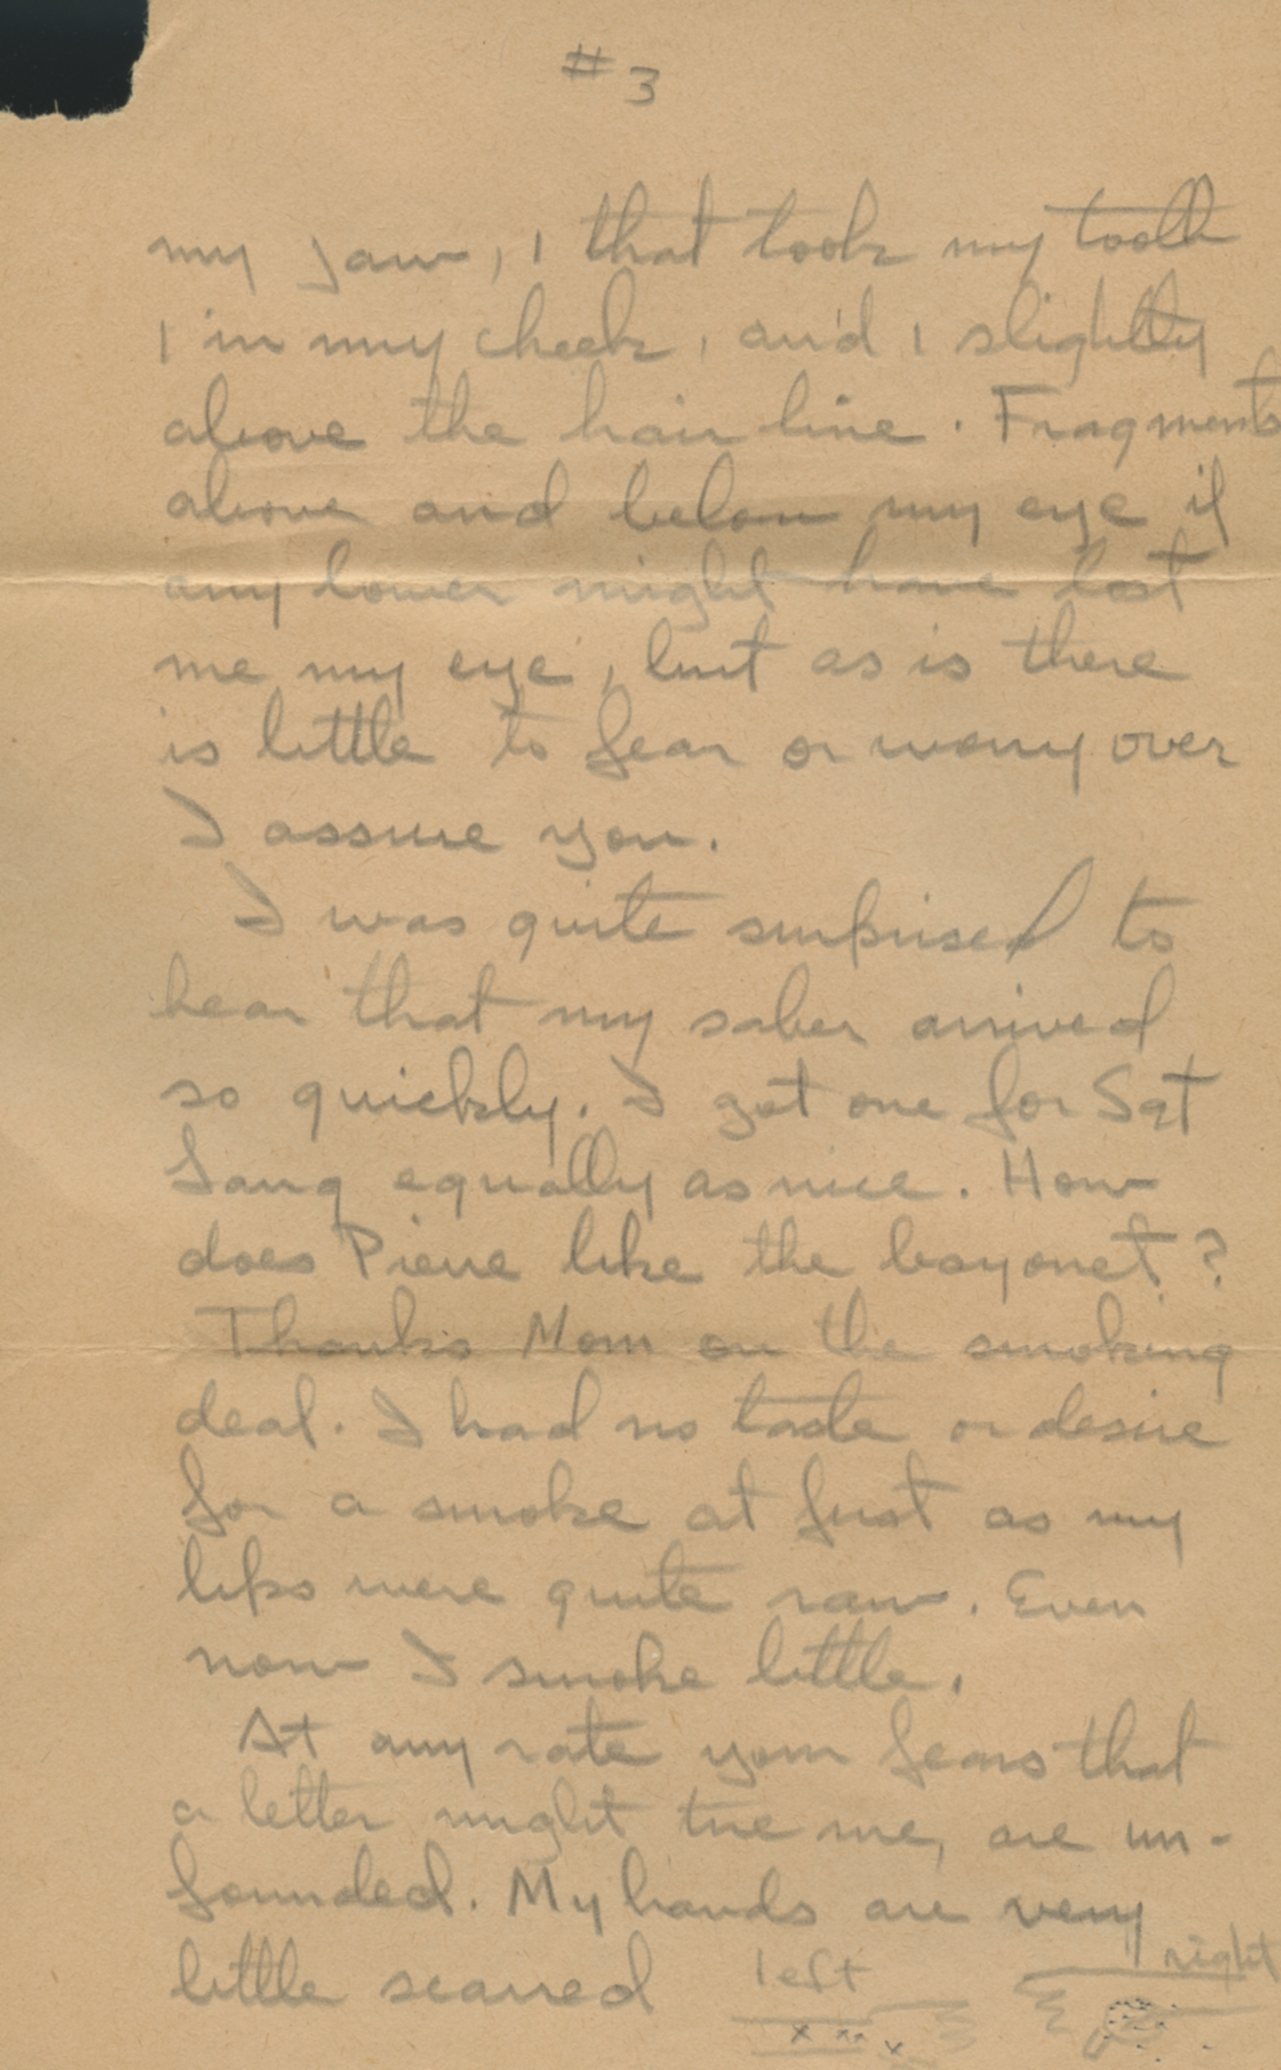 #3
my jaw, 1 that took my tooth
1 in my cheek, and 1 slightly
above the hair line. Fragments
above and below my eye if
any lower might have lost
me my eye, but as is there
is little to fear or worry over
I assure you.
I was quite surprised to
hear that my saber arrived
so quickly. I got one for Sgt
Lang equally as nice. How
does Pierre like the bayonet?
Thanks Mom on the smoking
deal. I had no taste or desire
for a smoke at first as my
lips were quite raw. Even
now I smoke little.
At any rate your fears that
a letter might tire me, are un-
founded. My hands are very
little scarred left right
x xx x